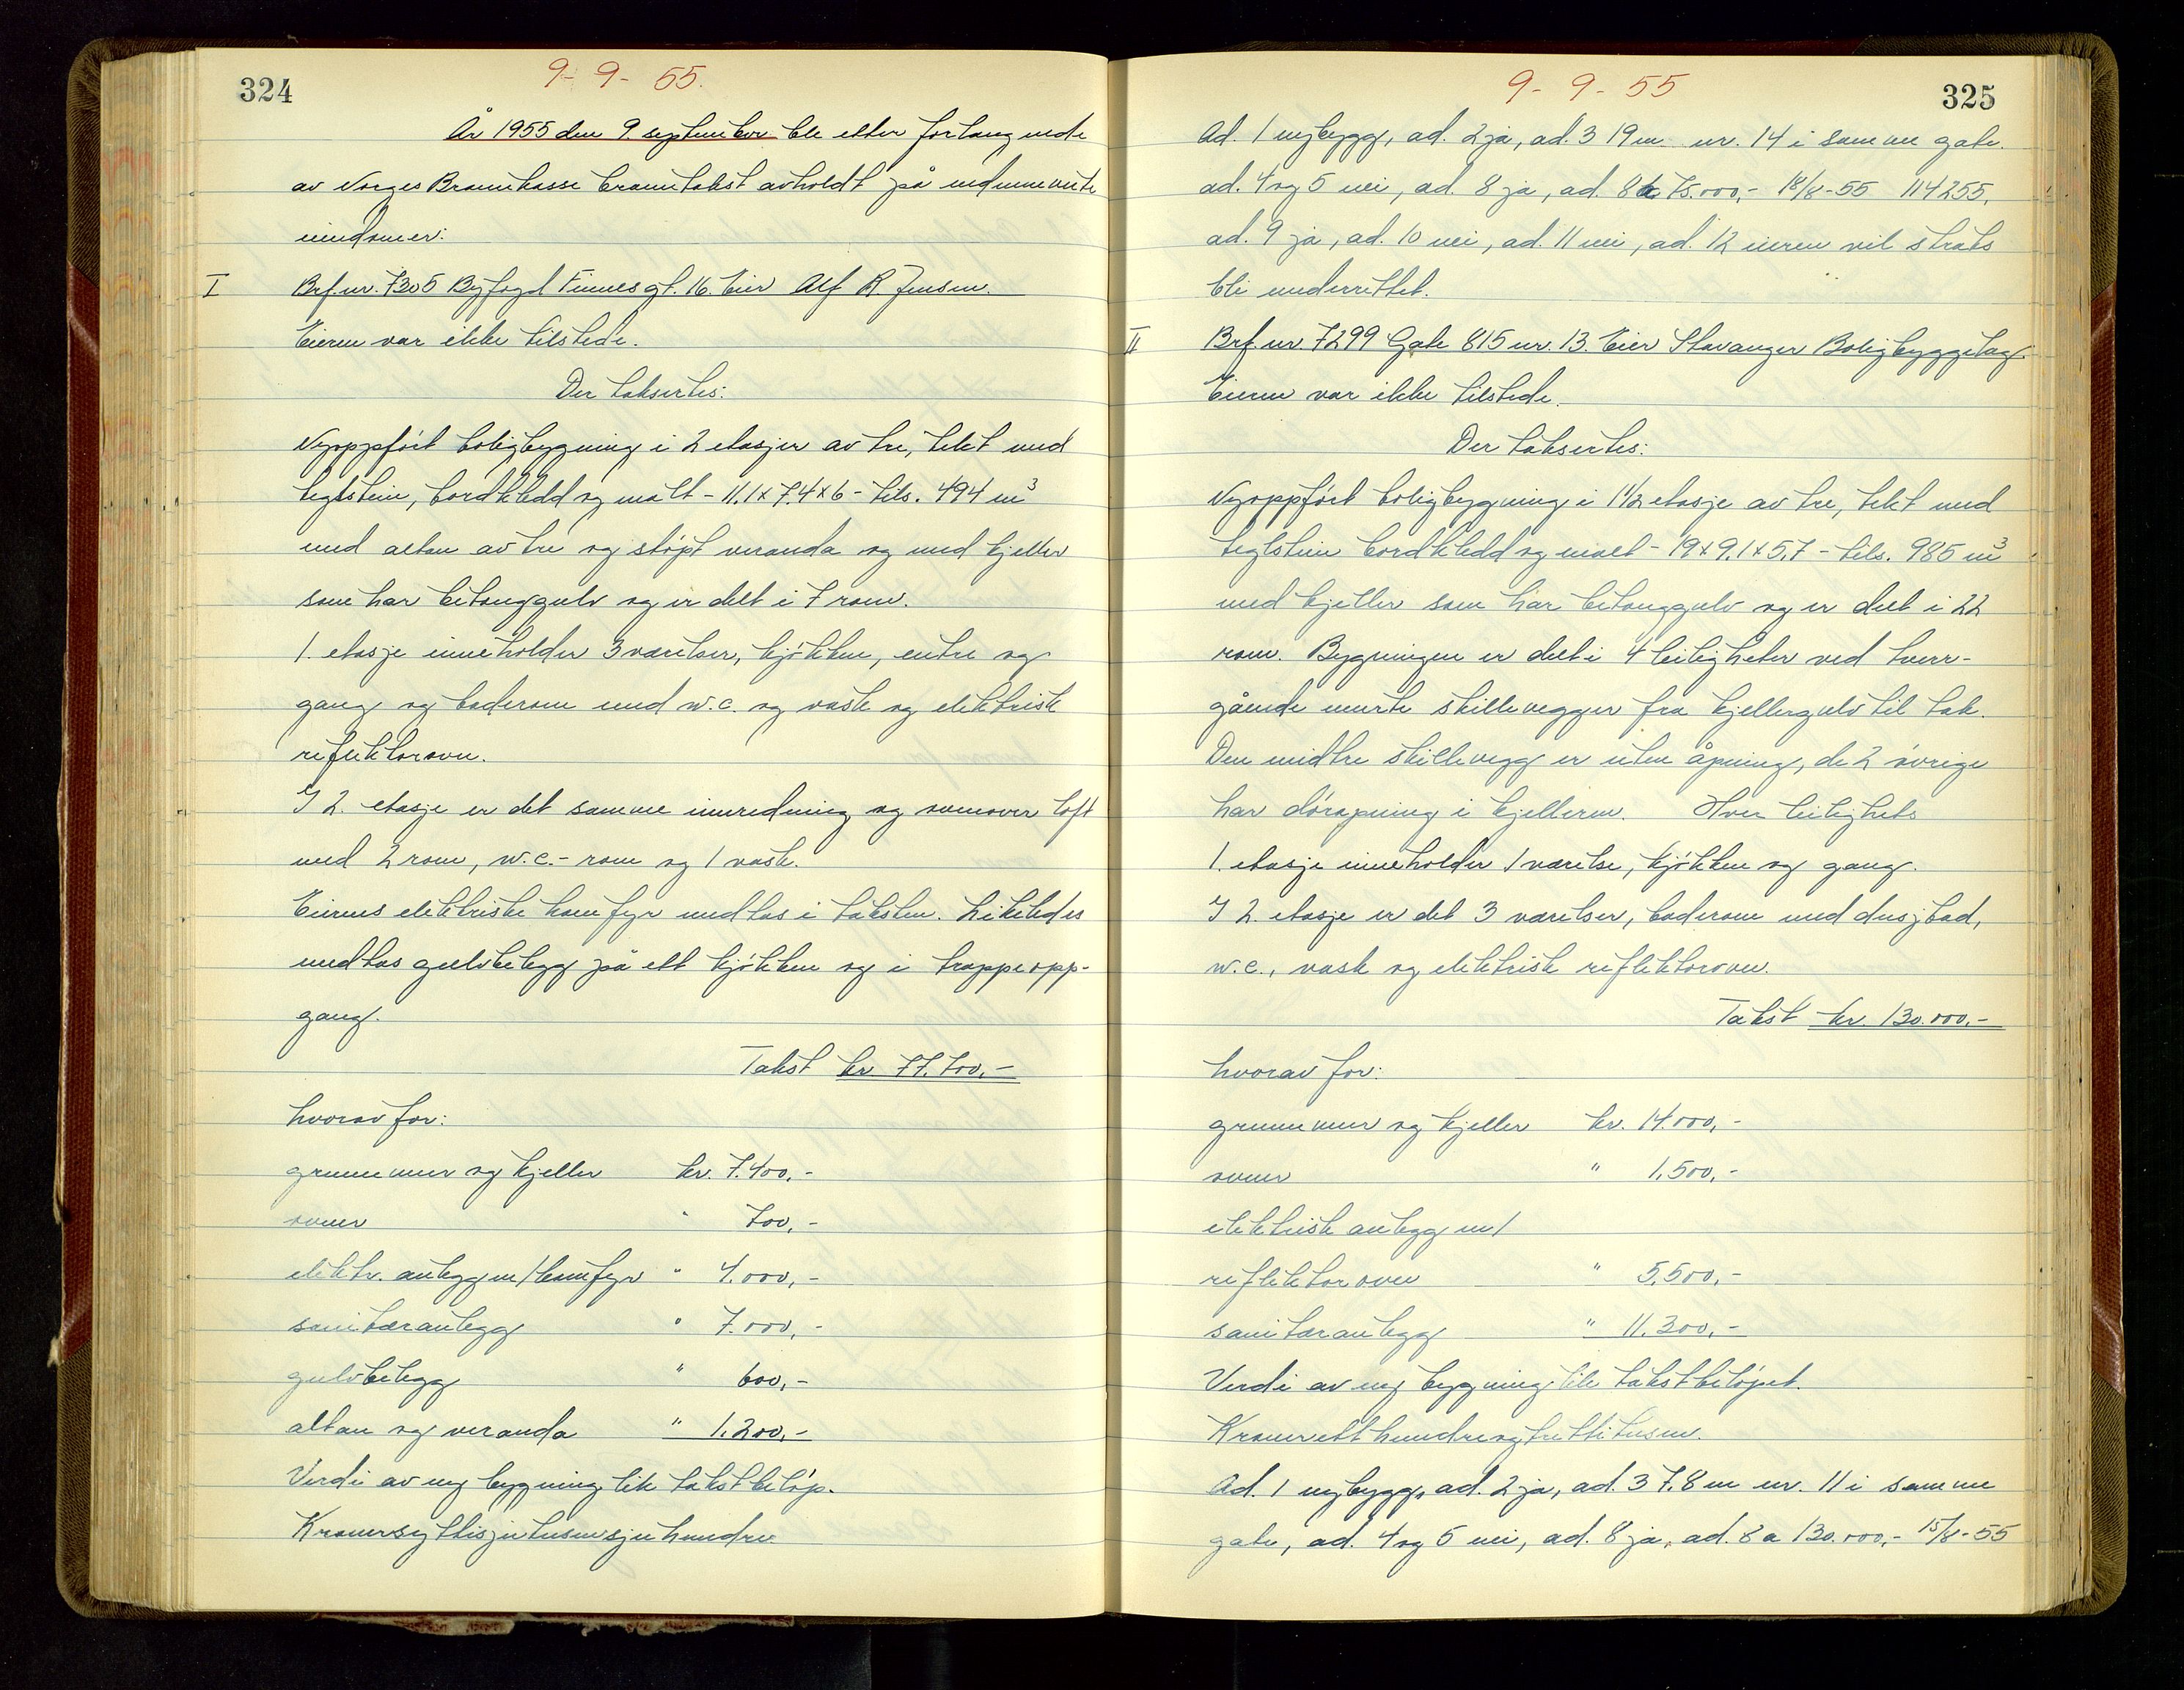 324
9-9-55.
År 1955 den 9. september ble etter forlangende
av Norges Brannkasse branntakst avholdt på nedennevnte
eiendomer:
I Brf.nr. 7305 Byfogd Finnesgt. 16. Eier Alf R. Jensen.
Eieren var ikke tilstede.
Der taksertes:
Nyoppført boligbygning i 2 etasjer av tre, tekt med
teglstein, bordkledd og malt - 11.1 x 7.4 x 6 - tils. 494 m³
med altan av tre og støpt veranda og med kjeller
som har betonggulv og er delt i 7 rom.
1. etasje inneholder 3 værelser, kjøkken, entre og
gang og baderom med w.c. og vask og elektrisk
reflektorovn.
I 2. etasje er det samme innredning og ovenover loft
med 2 rom, w.c.-rom og 1 vask.
Eierens elektriske komfyr medtas i taksten. Likeledes
medtas gulvbelegg på ett kjøkken og i trappeopp-
gang.
Takst kr. 77.700,-
hvorav for:
grunnmur og kjeller kr. 7.400,-
ovner " 700,-
elektr. anlegg m/komfyr " 4.000,-
sanitæranlegg " 7.000,-
gulvbelegg " 600,-
altan og veranda " 1.200,-
Verdi av ny bygning lik takstbeløp.
Kronersyttisjutusensjuhundre
325
9-9-55
Ad. 1 nybygg, ad. 2 ja, ad. 3 19 m nr. 14 i samme gate.
ad. 4 og 5 nei, ad. 8 ja, ad. 8a 75.000,- 18/8-55 114255,
ad. 9 ja, ad. 10 nei, ad. 11 nei, ad. 12 eieren vil straks
bli underrettet.
II Brf.nr 7299 Gate 815 nr. 13. Eier Stavanger Boligbyggelag.
Eieren var ikke tilstede.
Der taksertes:
Nyoppført boligbygning i 1 1/2 etasje av tre, tekt med
teglstein bordkledd og malt - 19 x 9.1 x 5.7 - tils. 985 m³
med kjeller som har betonggulv og er delt i 22
rom. Bygningen er delt i 4 leiligheter ved tverr-
gående murte skillevegger fra kjellergulv til tak.
Den midtre skillevegg er uten åpning, de 2 øvrige
har døråpning i kjelleren. Hver leilighets
1. etasje inneholder 1 værelse, kjøkken og gang.
I 2. etasje er det 3 værelser, baderom med dusjbad,
w.c., vask og elektrisk reflektorovn.
Takst kr. 130.000.-
hvorav for:
grunnmur og kjeller kr. 14.000,-
ovner " 1.500,-
elektrisk anlegg m/
reflektorovn " 5.500,-
sanitæranlegg " 11.300,-
Verdi av ny bygning lik takstbeløpet.
Kroneretthundreogtrettitusen.
Ad. 1 nybygg, ad. 2 ja, ad. 3 7.8 m nr. 11 i samme
gate, ad. 4 og 5 nei, ad. 8 ja, ad. 8a 130.000,- 15/8-55